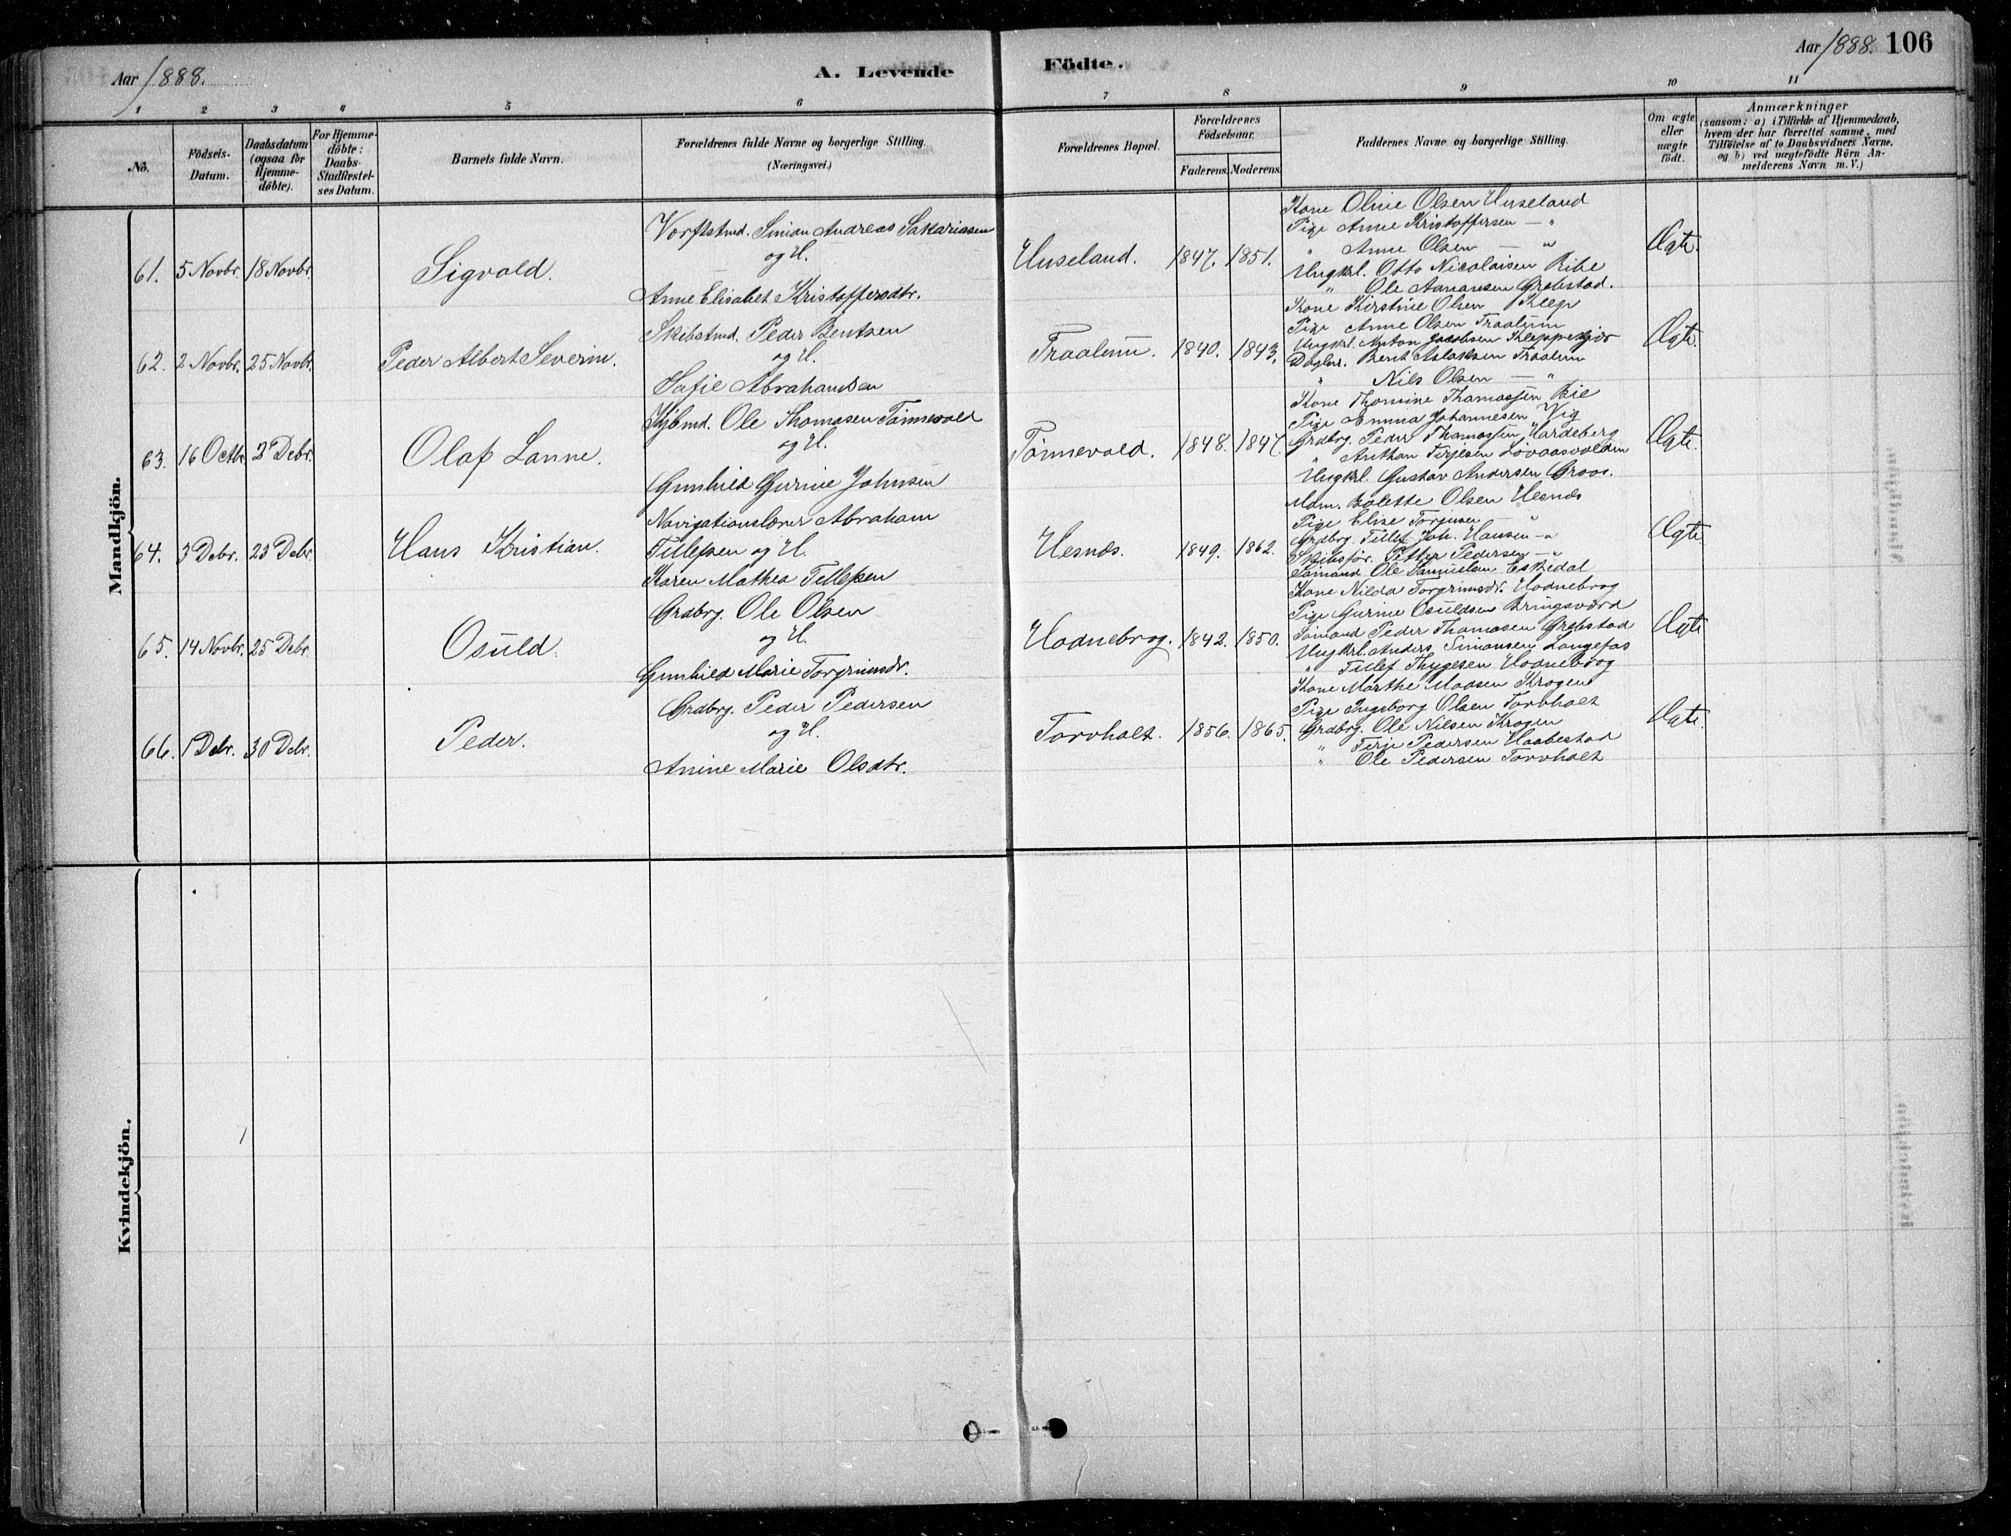 Aar 1888.
A. Levende Födte.
Aar 1888. 106
1 2 3 4 5 6 7 8 9 10 11
No.
Födsels-Datum.
Daabsdatum (ogsaa for Hjemmedöbte).
For Hjemmedöbte: Daabs-Stadfæstelses Datum.
Barnets fulde Navn.
Forældrenes fulde Navne og borgerlige Stilling. (Næringsvei.)
Forældrenes Bopæl.
Forældrenes Födselsaar.
Faderens. Moderens.
Faddernes Navne og borgerlige Stilling.
Om ægte eller uægte födt.
Anmærkninger
(saasom: a) i Tilfælde af Hjemmedaab,
hvem der har forrettet samme, med
Tilföielse af to Daabsvidners Navne,
og b) ved uægtefödte Börn An-
melderens Navn m. V.)
Mandkjön.
61. 5 Novbr. 18 Novbr. Sigvald.
Vorftstmd. Simon Andreas Sakariasen
og H.
Anne Elisabet Kristoffersdtr.
Huseland. 1847. 1851.
Kone Oline Olsen Huseland
Pige Anne Kristoffersen — "
" Anne Olsen — "
Ungkrl. Otto Nicolaisen Bibe
" Ole Aanansen Grebstad.
Ægte.
62. 2 Novbr. 25 Novbr. Peder Albert Severin.
Skibstmd. Peder Bentsen
og H.
Sofie Abrahamsen
Traalum. 1840. 1843.
Kone Kirstine Olsen Klep
Pige Anne Olsen Traalum
Ungkrl. Anton Jacobsen Kleppekjær
Daglnr. Bent Aslaksen Traalum
" Nils Olsen — "
Ægte.
63. 16 Octbr. 2 Debr. Olaf Lanne.
Kjbmd. Ole Thomasen Tönnevold
og H.
Gunhild Gurine Johnsen
Tönnevold. 1848. 1847.
Kone Thomine Thomassen Bie
Pige Emma Johannesen Vig
Grdbrg. Peder Thomassen Hardeberg
" Anthon Terjesen Lovaasvolden
Ungkrl. Gustav Andersen Groos.
Ægte.
64. 3 Debr. 23 Debr. Hans Kristian.
Navigationslærer Abraham
Tellefsen og H.
Karen Mathea Tellefsen
Hesnæs. 1849. 1862.
Mdm. Bolette Olsen Hesnæs
Pige Elise Torjusen "
Grdbrg. Tellef Joh. Hansen — "
Skibsför. Petter Pedersen — "
Sömand Ole Samuelsen Eskedal
Ægte.
65. 14 Novbr. 25 Debr. Osuld.
Grdbrg. Ole Olsen
og H.
Gunhild Marie Torgrimsdr.
Hodnebrog. 1842. 1850.
Kone Nilda Torgrimsdr. Hodnebrog
Pige Gurine Osuldsen Bringsværd
Sömand Peder Thomasen Grebstad
Ungkrl. Anders Simonsen Langefos
" Tellef Thygesen Hodnebrog
Ægte
66. 1 Debr. 30 Debr. Peder.
Grdbrg. Peder Pedersen
og H.
Anine Marie Olsdtr.
Torvholt. 1856. 1865.
Kone Marthe Madsen Krogen
Pige Ingeborg Olsen Torvholt
Grdbrg. Ole Nilsen Krogen
" Terje Pedersen Haabestad
" Ole Pedersen Torvholt
Ægte.
Kvindekjön.